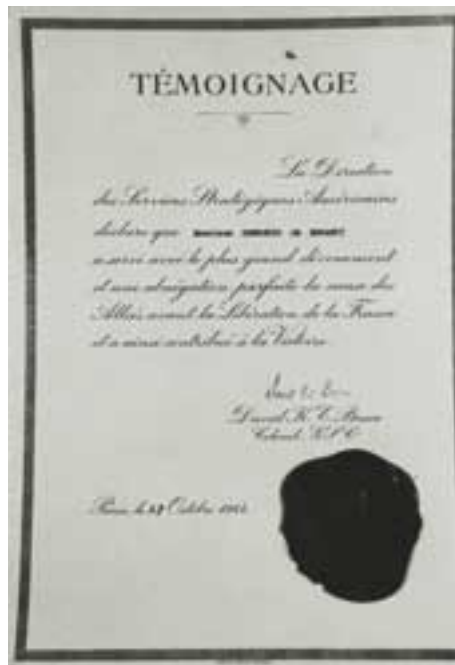 TÉMOIGNAGE
La Direction
des Services Stratégiques Américains
déclare que
a servi avec le plus grand dévouement
et une abnégation parfaite la cause des
Alliés avant la Libération de la France
et a ainsi contribué à la Victoire.
David K. E. Bruce
Colonel
Paris, le 27 Octobre